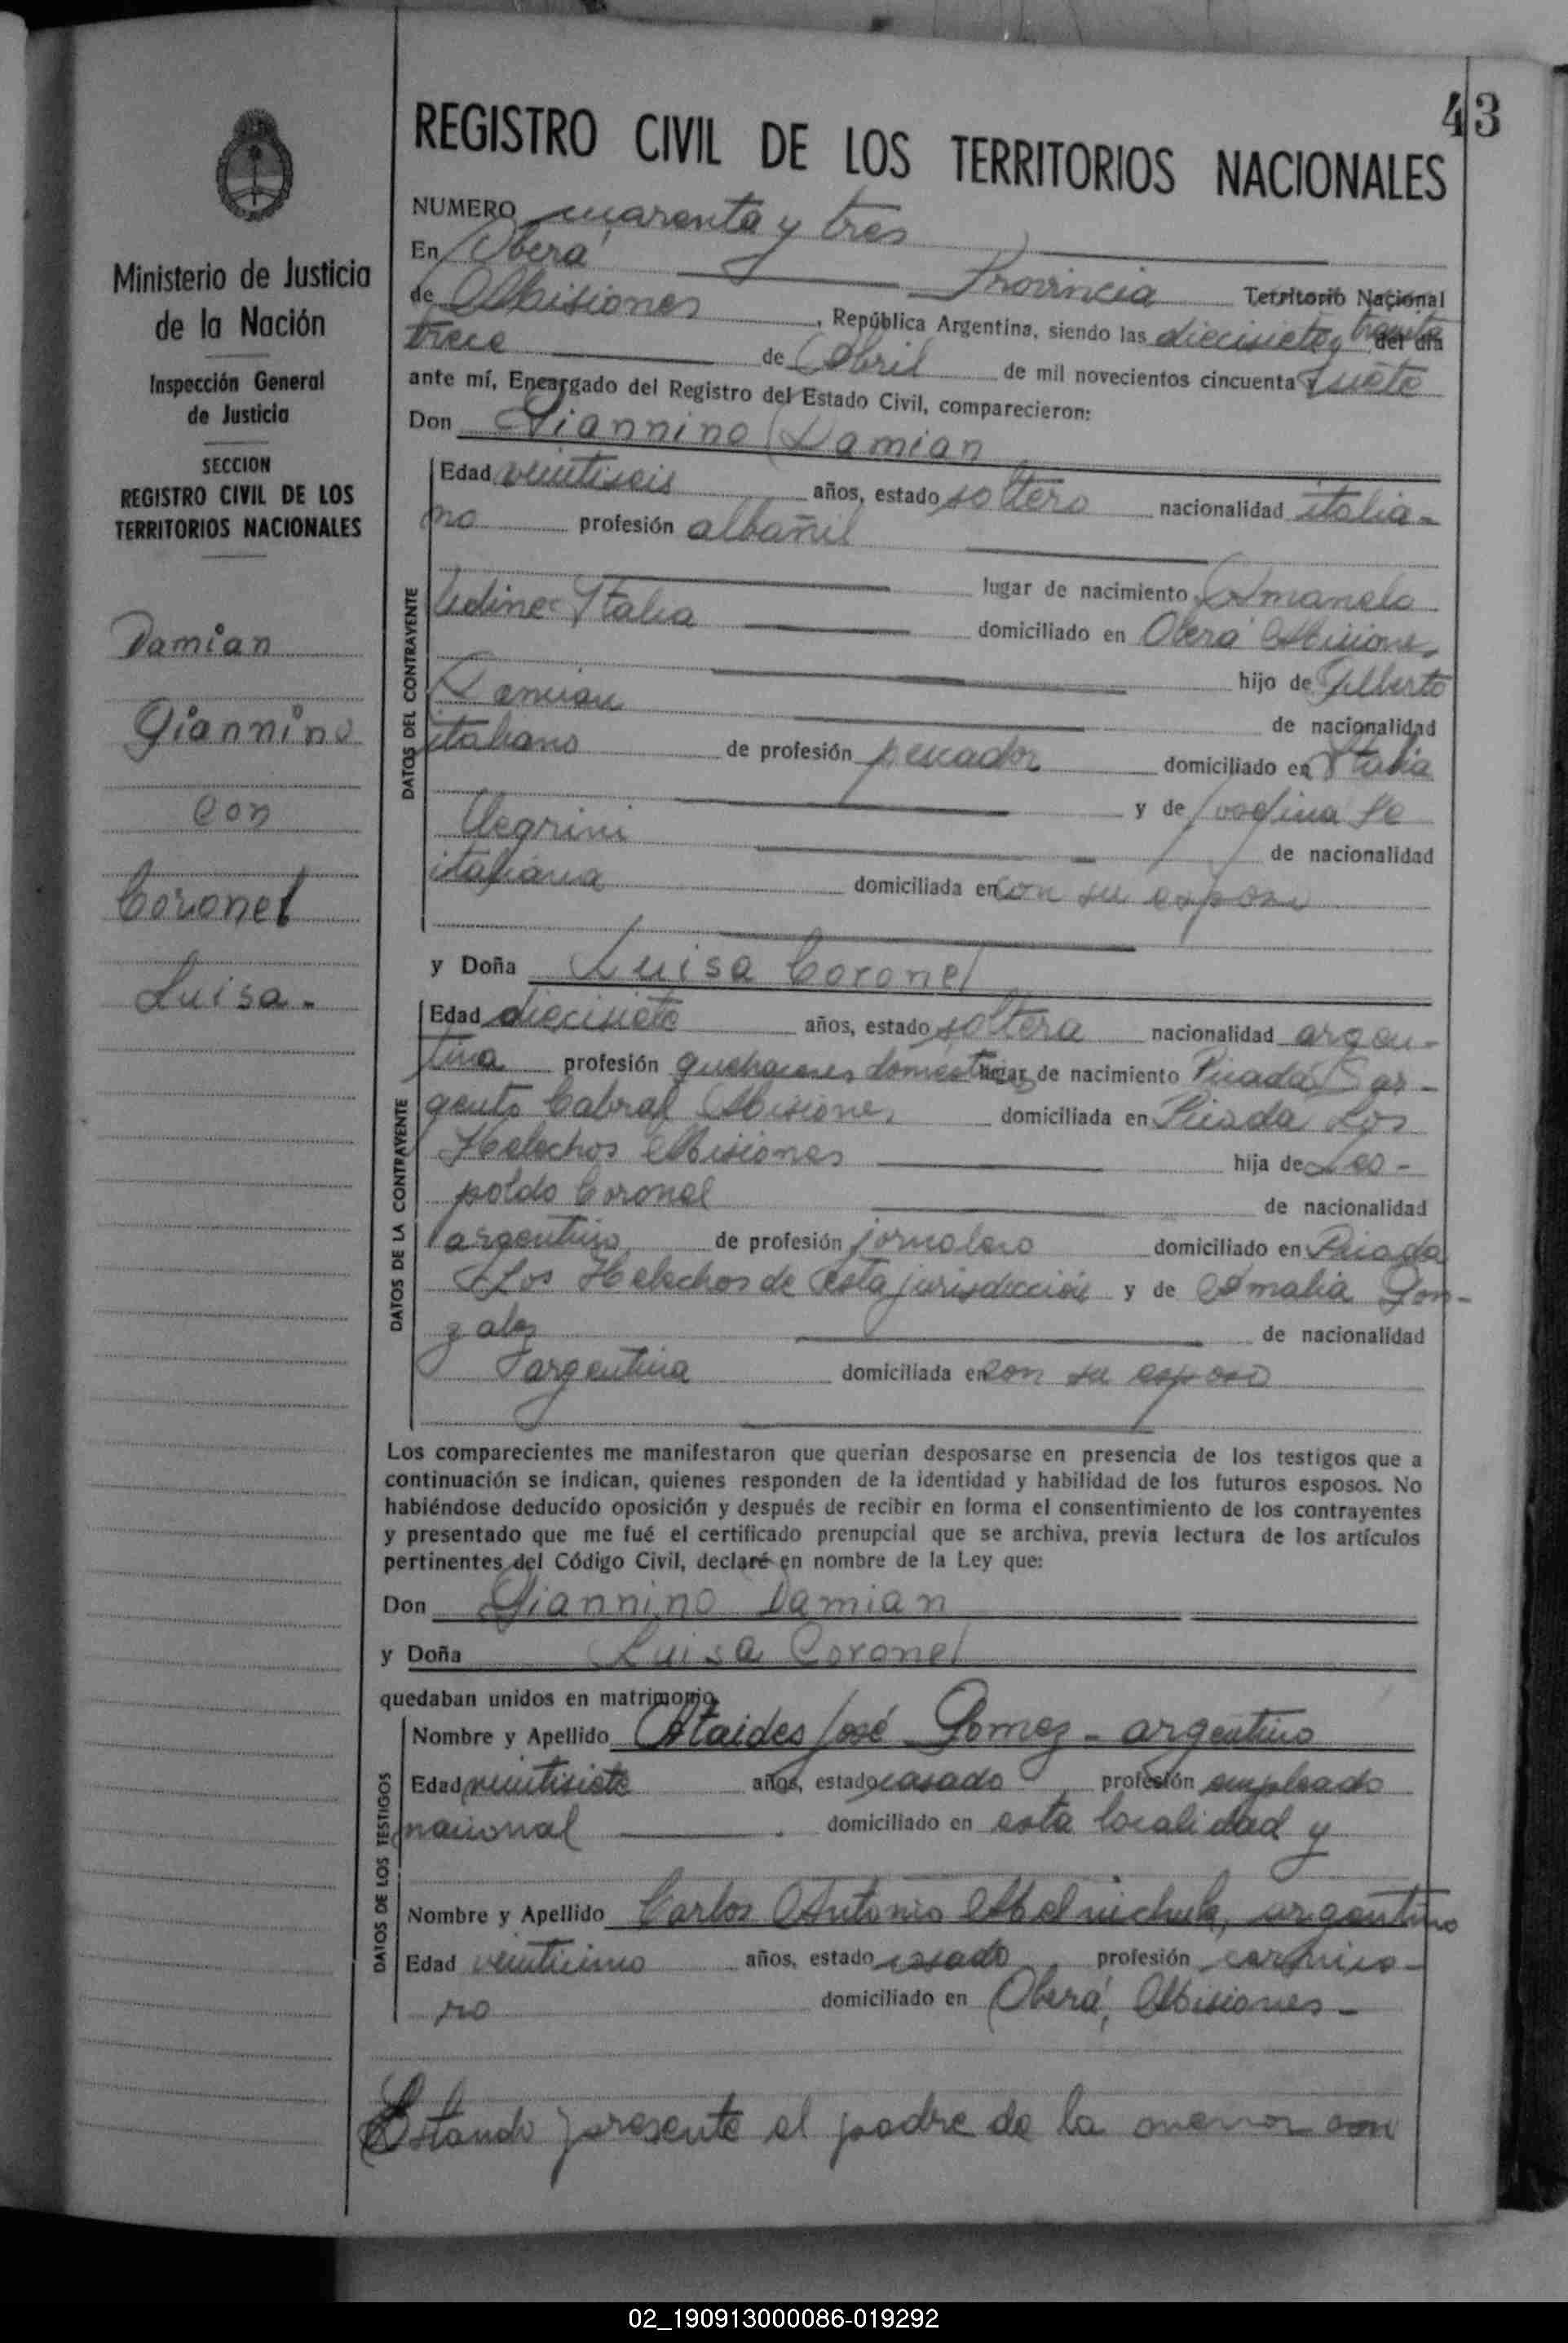 43
REGISTRO CIVIL DE LOS TERRITORIOS NACIONALES
Ministerio de Justicia
de la Nación
Inspección General
de Justicia
SECCION
REGISTRO CIVIL DE LOS
TERRITORIOS NACIONALES
Damian
Giannino
con
Coronel
Luisa.-
NUMERO cuarenta y tres
En Oberá Provincia Territorio Nacional
de Misiones, República Argentina, siendo las diecisiete y treinta del día
trece de Abril de mil novecientos cincuenta y siete
ante mí, Encargado del Registro del Estado Civil, comparecieron:
Don Giannino Damian
DATOS DEL CONTRAYENTE
Edad veintiseis años, estado soltero nacionalidad italia-
no profesión albañil
lugar de nacimiento
Udine Italia domiciliado en Oberá Misiones
hijo de Gilberto
Damian de nacionalidad
italiano de profesión pescador domiciliado en Italia
y de
de nacionalidad
italiana domiciliada en con su esposo
y Doña Luisa Coronel
DATOS DE LA CONTRAYENTE
Edad diecisiete años, estado soltera nacionalidad argen-
tina profesión quehaceres domésticos lugar de nacimiento Picada Sar-
gento Cabral Misiones domiciliada en Picada Los
Helechos Misiones hija de Leo-
poldo Coronel de nacionalidad
argentino de profesión jornalero domiciliado en Picada
Los Helechos de esta jurisdicción y de Amalia Gon-
zalez de nacionalidad
argentina domiciliada en con su esposo
Los comparecientes me manifestaron que querían desposarse en presencia de los testigos que a
continuación se indican, quienes responden de la identidad y habilidad de los futuros esposos. No
habiéndose deducido oposición y después de recibir en forma el consentimiento de los contrayentes
y presentado que me fué el certificado prenupcial que se archiva, previa lectura de los artículos
pertinentes del Código Civil, declaré en nombre de la Ley que:
Don Giannino Damian
y Doña Luisa Coronel
quedaban unidos en matrimonio.
DATOS DE LOS TESTIGOS
Nombre y Apellido Ataides José Gomez - argentino
Edad veintisiete años, estado casado profesión empleado
nacional domiciliado en esta localidad y
Nombre y Apellido Carlos Antonio Melnichuk, argentino
Edad años, estado casado profesión carnice-
ro domiciliado en Oberá, Misiones -
Estando presente el padre de la menor con
02_190913000086-019292